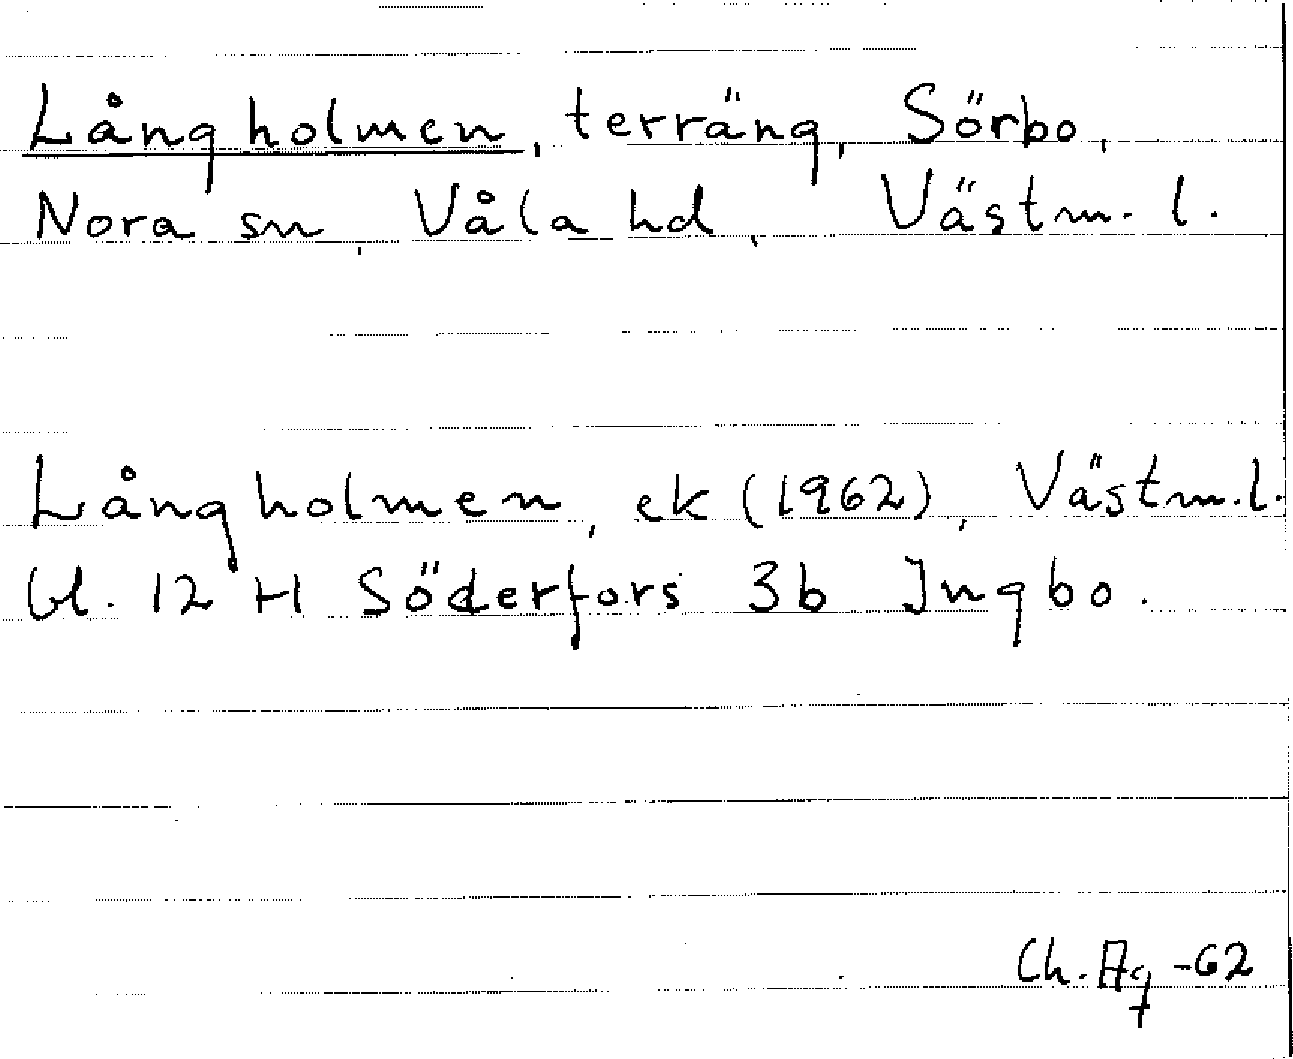 Långholmen, terräng, Sörbo,
Nora sn, Våla hd, Västm. l.
Långholmen, ek (1962), Västm.l.
bl. 12 H Söderfors 3b Ingbo.
Ch. Ag -62